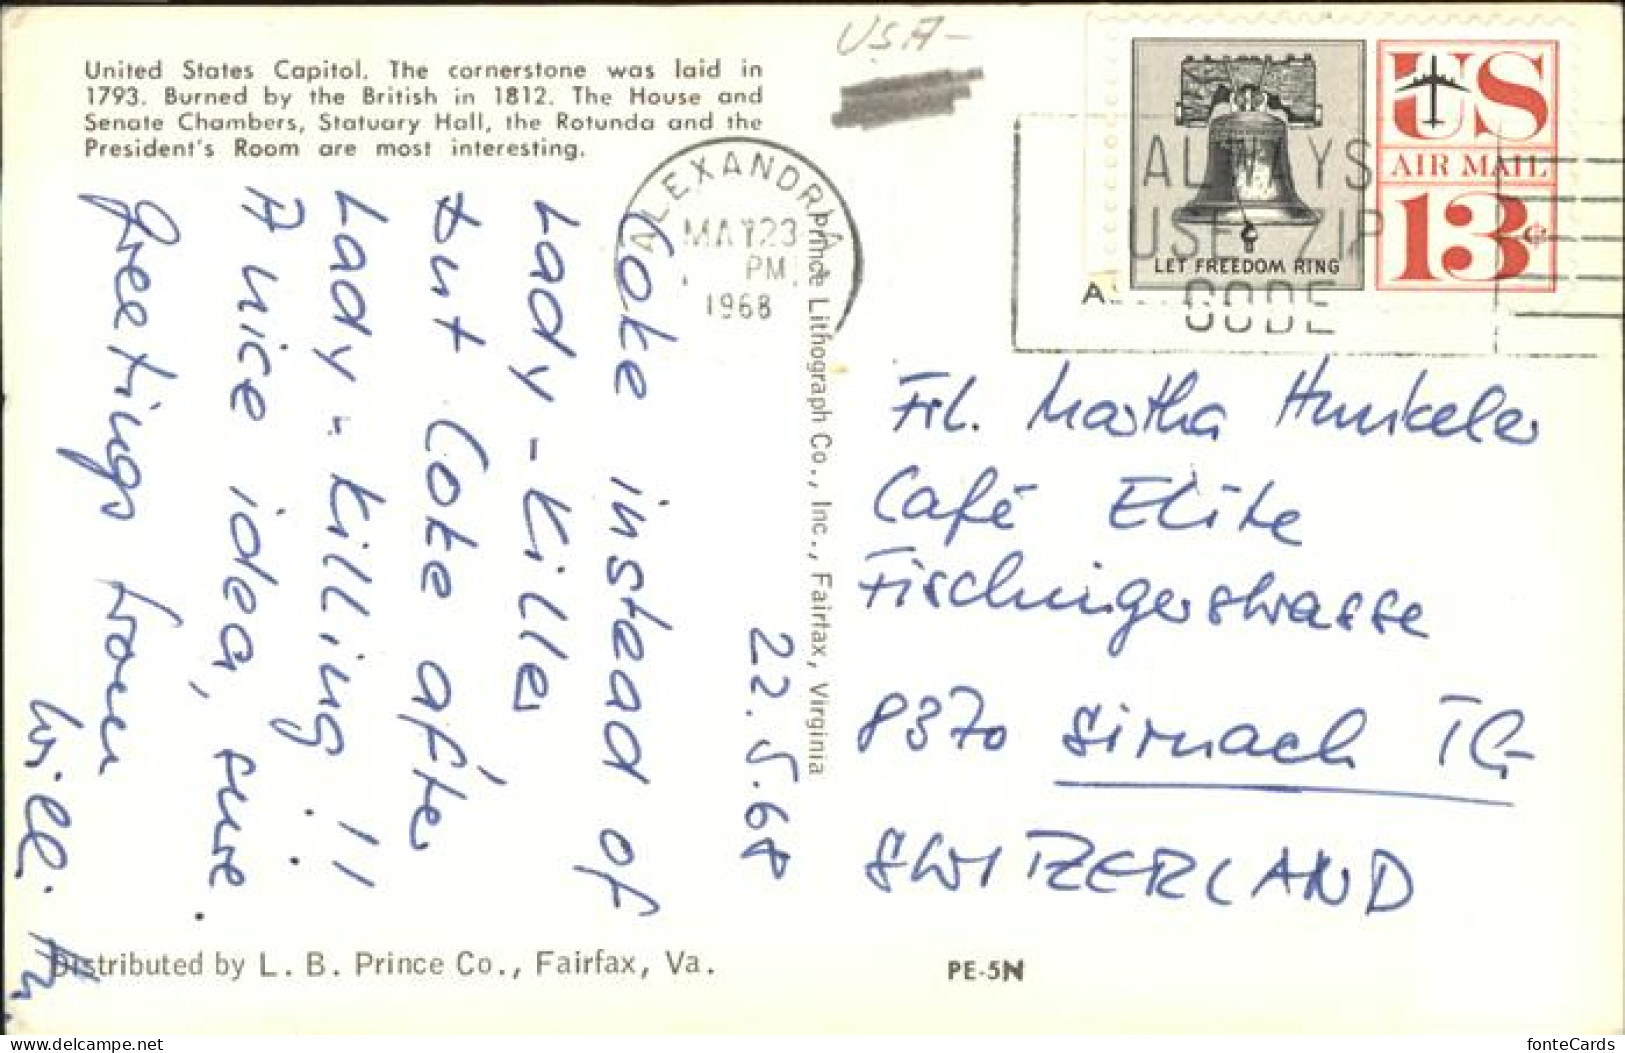 United States Capitol. The cornerstone was laid in
1793. Burned by the British in 1812. The House and
Senate Chambers, Statuary Hall, the Rotunda and the
President's Room are most interesting.
USA
ALEXANDRIA
MAY 23
PM
1968
ALWAYS
USE ZIP
CODE
LET FREEDOM RING
US
AIR MAIL
13¢
22.5.68
Coke instead of
Lady-Killer
but Coke after
Lady-killing!!
A nice idea, sure.
Greetings from
Prince Lithograph Co., Inc., Fairfax, Virginia
Frl. Martha Hunkeler
Café Elite
Fischingerstrasse
8370 Sirnach TG
SWITZERLAND
Distributed by L. B. Prince Co., Fairfax, Va.
PE-5N
https://www.delcampe.net
fonteCards